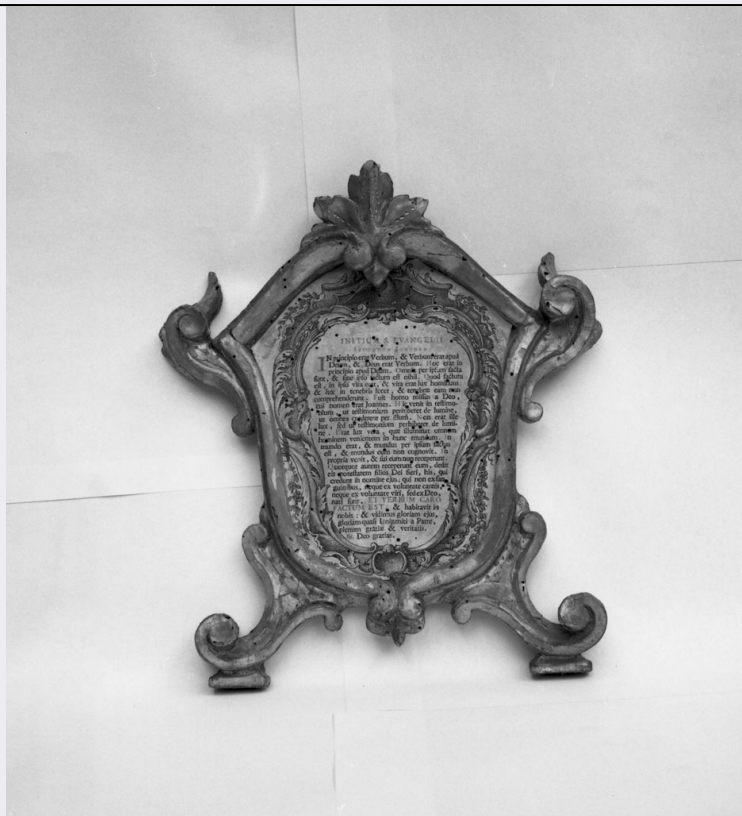 INITIUM S. EVANGELII
Secundum Joannem
IN principio erat Verbum, & Verbum erat apud
Deum, & Deus erat Verbum. Hoc erat in
principio apud Deum. Omnia per ipsum facta
sunt, & sine ipso factum est nihil. Quod factum
est, in ipso vita erat, & vita erat lux hominum:
& lux in tenebris lucet, & tenebræ eam non
comprehenderunt. Fuit homo missus a Deo,
cui nomen erat Joannes. Hic venit in testimo-
nium, ut testimonium perhiberet de lumine,
ut omnes crederent per illum. Non erat ille
lux, sed ut testimonium perhiberet de lumi-
ne. Erat lux vera, quæ illuminat omnem
hominem venientem in hunc mundum. In
mundo erat, & mundus per ipsum factus
est, & mundus eum non cognovit. In
propria venit, & sui eum non receperunt.
Quotquot autem receperunt eum, dedit
eis potestatem filios Dei fieri, his, qui
credunt in nomine ejus: qui non ex san-
guinibus, neque ex voluntate carnis,
neque ex voluntate viri, sed ex Deo
nati sunt. ET VERBUM CARO
FACTUM EST, & habitavit in
nobis: & vidimus gloriam ejus,
gloriam quasi Unigeniti a Patre,
plenum gratiæ & veritatis.
Deo gratias.